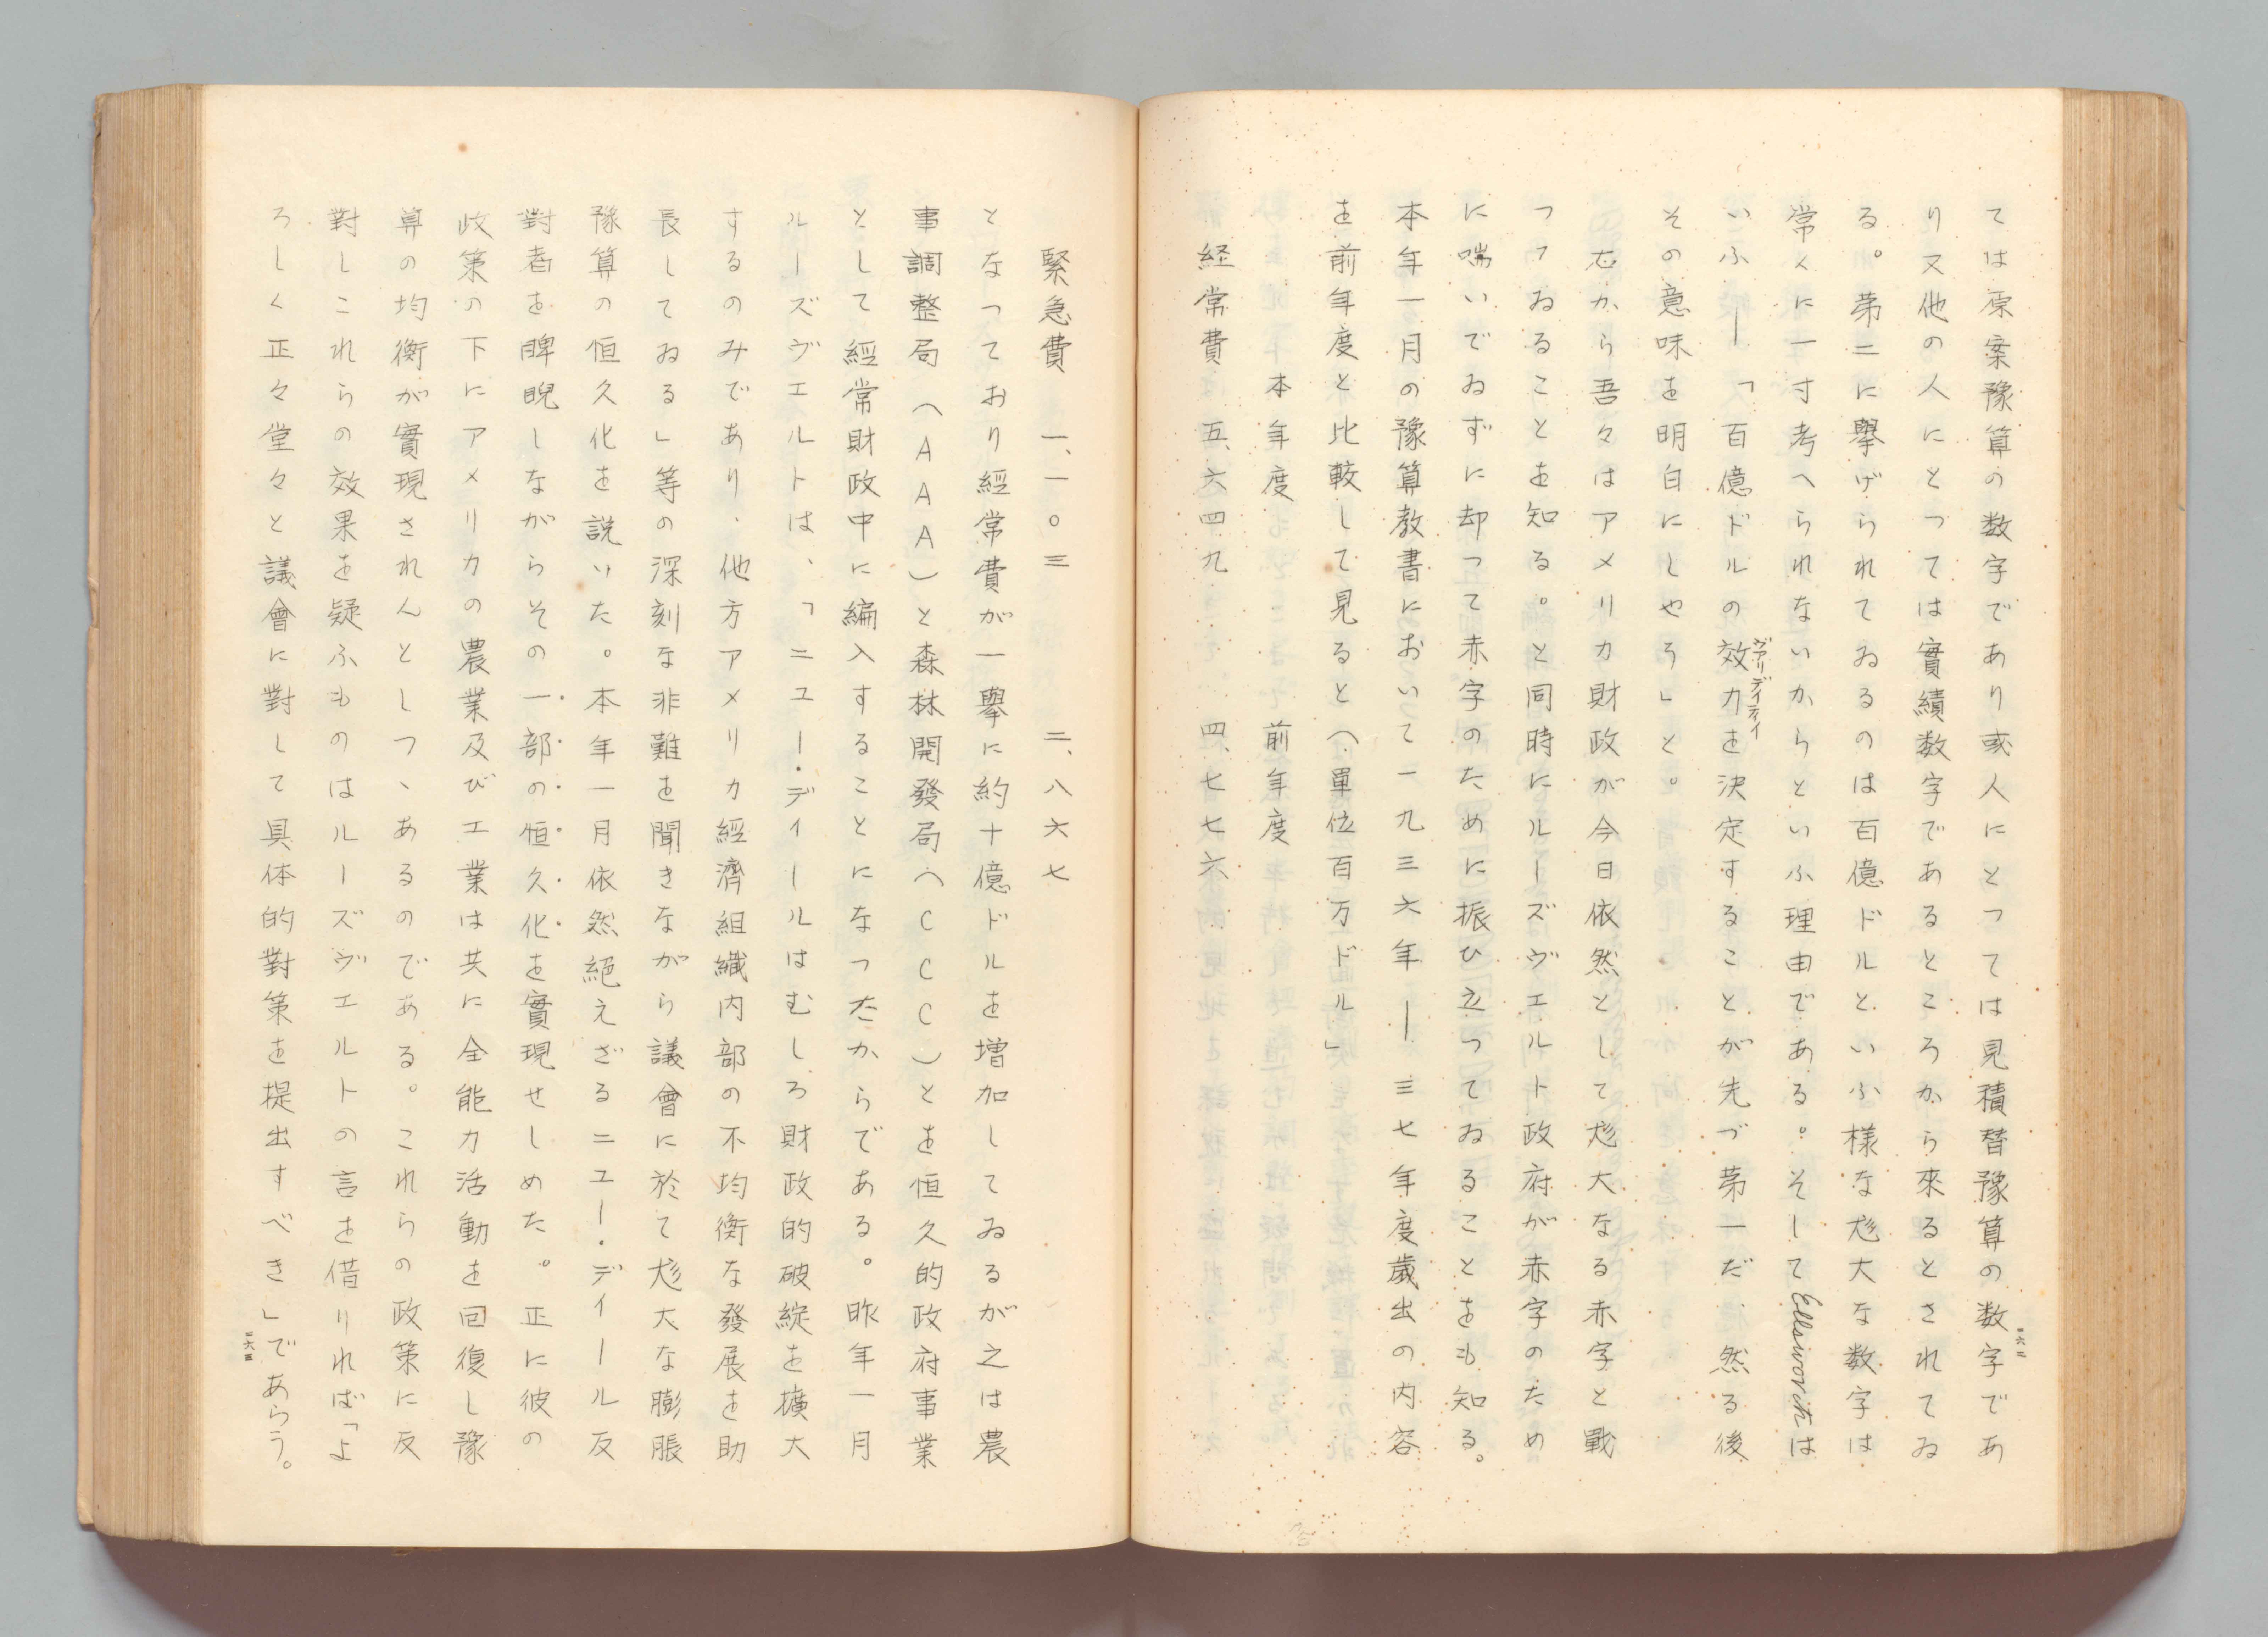 ては原案豫算の数字であり或人にとつては見積替豫算の数字であ
り又他の人にとつては實績数字であるところから來るとされてゐ
る。第二に擧げられてゐるのは百億ドルといふ様な尨大な数字は
常々に一寸考へられないからといふ理由である。そしてEllsworthは
いふ―「百億ドルの効力を決定することが先づ第一だ、然る後
ヴァリディティ
その意味を明白にしやう」と。
だから吾々はアメリカ財政が今日依然として尨大なる赤字と戰
つてゐることを知る。と同時にルーズヴエルト政府が赤字のため
に喘いでゐずに却つて赤字のために振ひ立つてゐることをも知る。
本年一月の豫算教書において一九三六年―三七年度歲出の内容
を前年度と比較して見ると(單位百万ドル」
本年度 前年度
経常費 五、六四九 四、七七六
二六二
緊急費 一、一〇三 二、八六七
となつており經常費が一擧に約十億ドルを増加してゐるが之は農
事調整局(AAA)と森林開發局(CCC)とを恒久的政府事業
として經常財政中に編入することになつたからである。昨年一月
ルーズヴエルトは、「ニユー・ディールはむしろ財政的破綻を擴大
するのみであり、他方アメリカ經濟組織内部の不均衡な發展を助
長してゐる」等の深刻な非難を聞きながら議會に於て尨大な膨脹
豫算の恒久化を説いた。本年一月依然絕えざるニユー・ディール反
對者を睥睨しながらその一部の恒久化を實現せしめた。正に彼の
政策の下にアメリカの農業及び工業は共に全能力活動を回復し豫
算の均衡が實現されんとしつゝあるのである。これらの政策に反
對しこれらの效果を疑ふものはルーズヴエルトの言を借りれば「よ
ろしく正々堂々と議會に對して具体的對策を提出すべき」であらう。
二六三